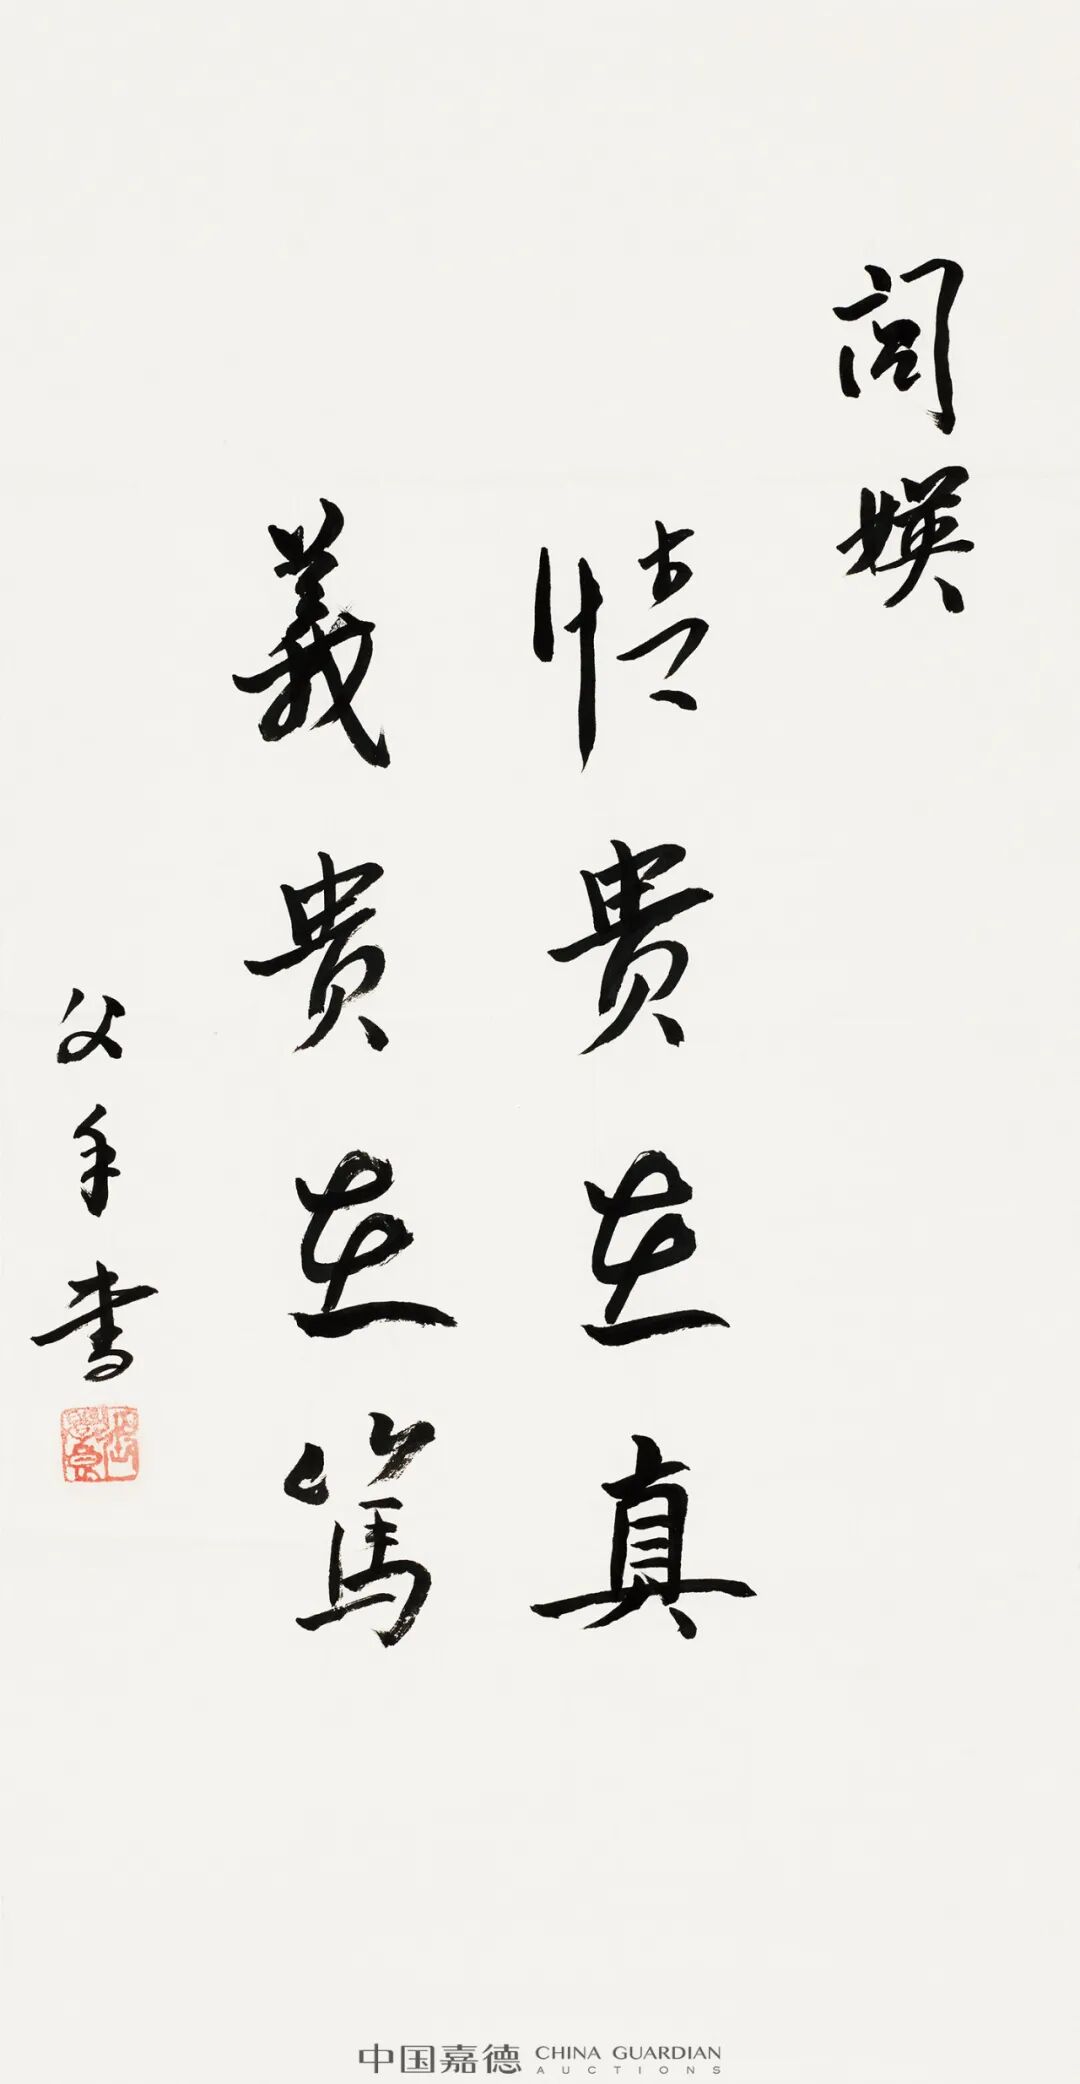 闾媖
情贵在真
義贵在篤
父手書
中国嘉德 CHINA GUARDIAN
AUCTIONS